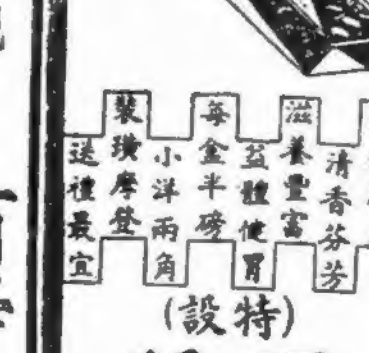 清香芬芳
滋養豐富
益體健胃
每盒半磅
小洋兩角
裝璜摩登
送禮最宜
(設特)